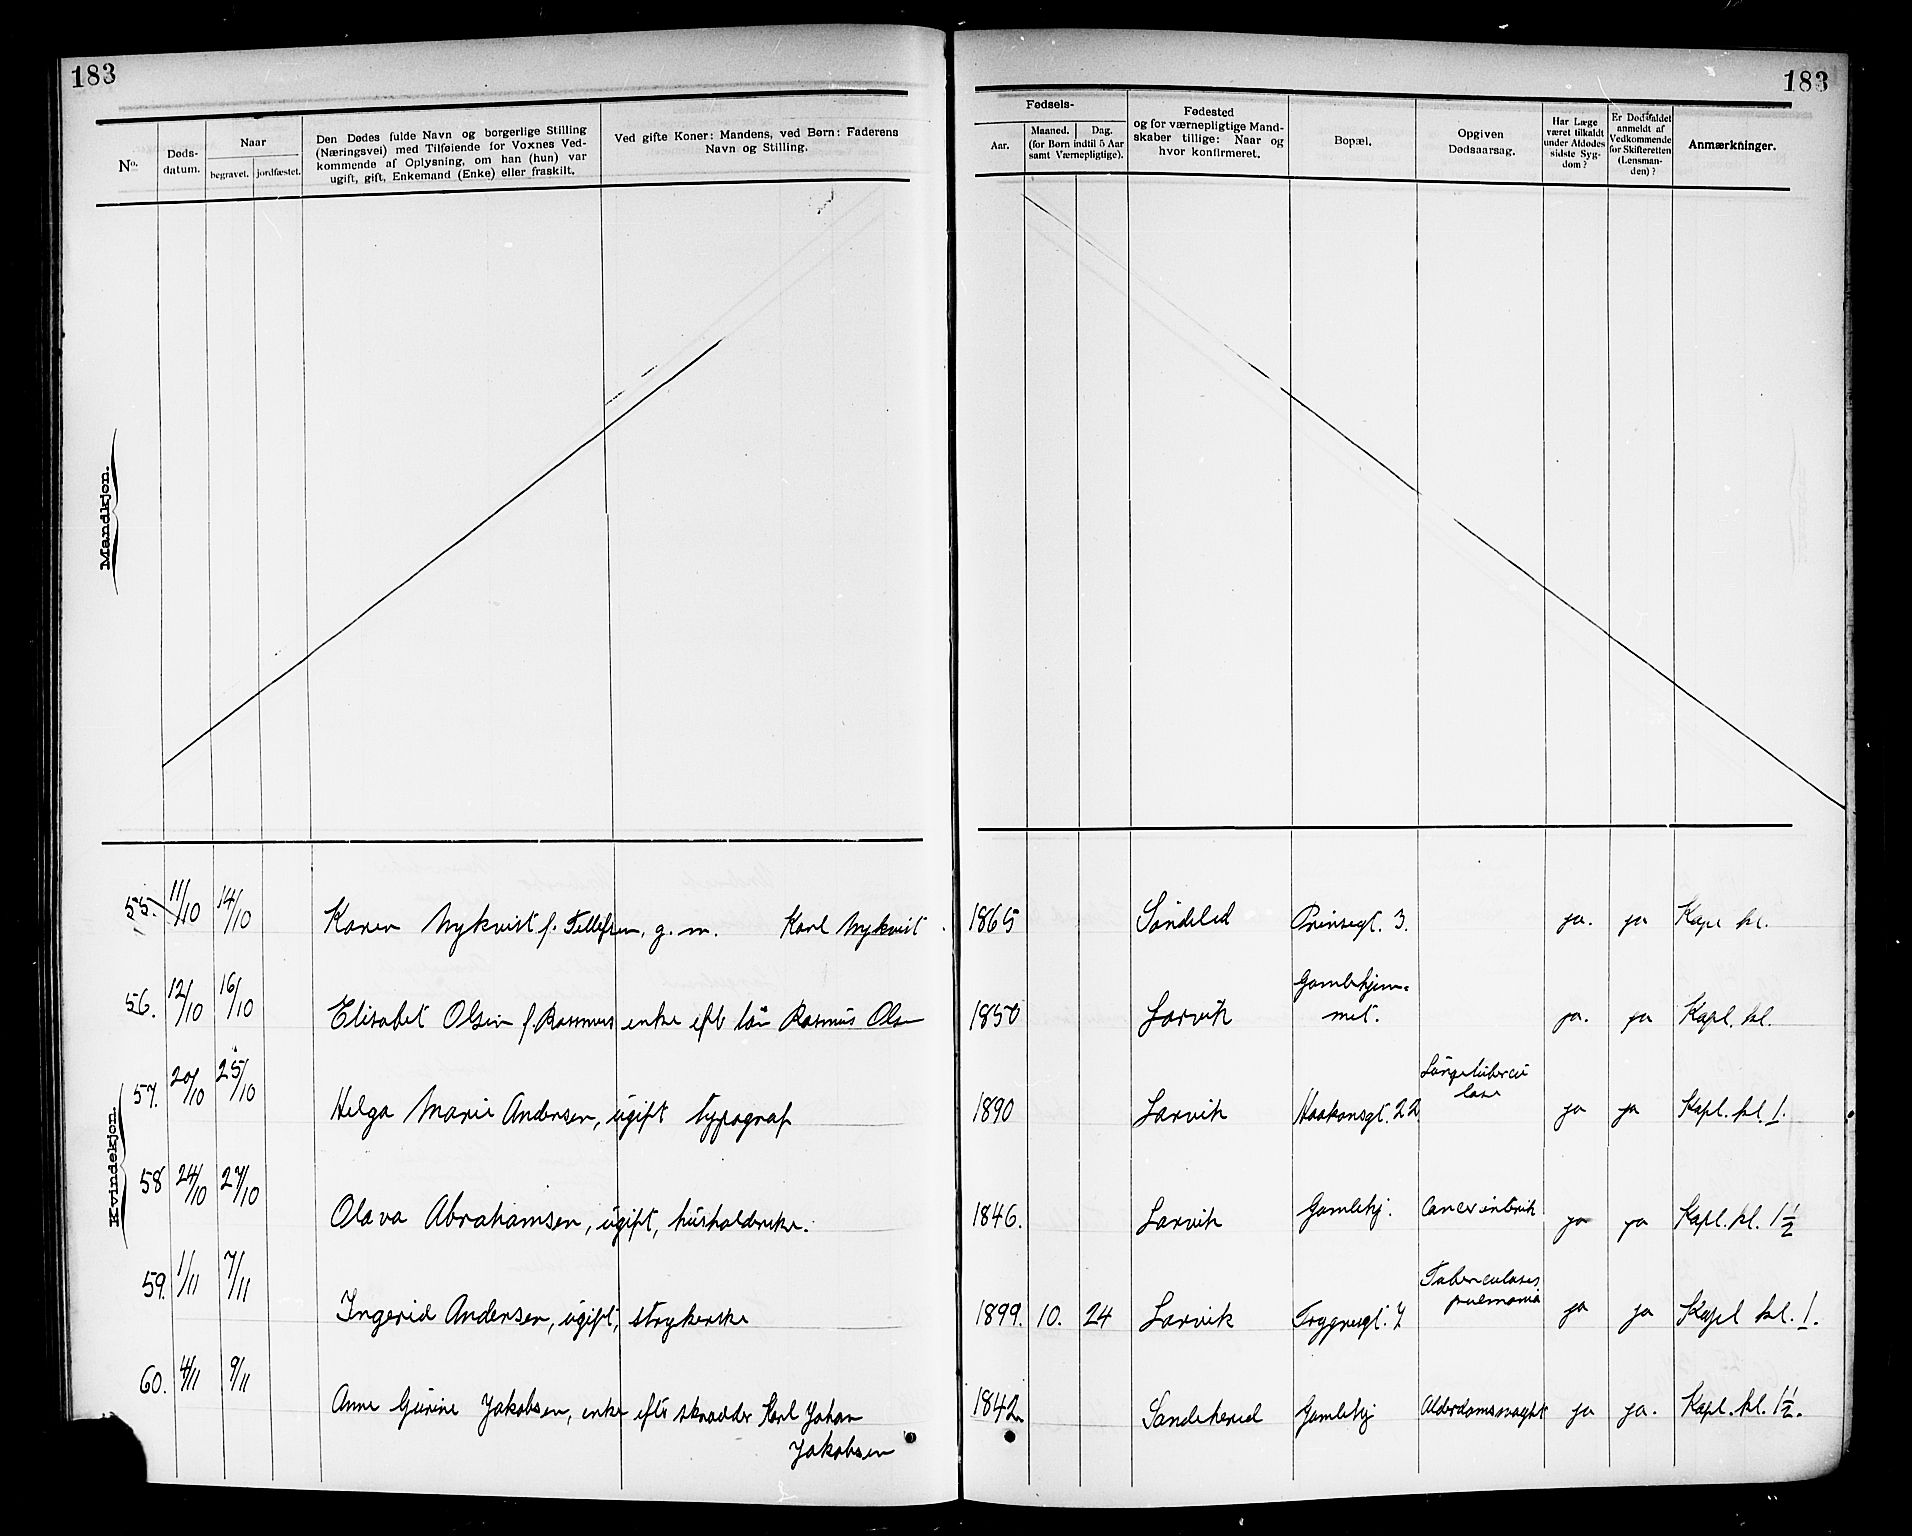 183
183
No.
Døds-
datum.
Naar
begravet.
jordfæstet.
Den Dødes fulde Navn og borgerlige Stilling
(Næringsvei) med Tilføiende for Voxnes Ved-
kommende af Oplysning, om han (hun) var
ugift, gift, Enkemand (Enke) eller fraskilt.
Ved gifte Koner: Mandens, ved Børn: Faderens
Navn og Stilling.
Fødsels-
Aar.
Maaned.
Dag.
(for Børn indtil 5 Aar
samt Værnepligtige).
Fødested
og for værnepligtige Mand-
skaber tillige: Naar og
hvor konfirmeret.
Bopæl.
Opgiven
Dødsaarsag.
Har Læge
været tilkaldt
under Afdødes
sidste Syg-
dom?
Er Dødsfaldet
anmeldt af
Vedkommende
for Skifteretten
(Lensman-
den)?
Anmærkninger.
Mandkjøn.
Kvindekjøn.
55. 11/10 14/10 Karen Nykvist f. Tellefsen, g. m. Karl Nykvist 1865 Søndeled Prinsegt. 3. ja. ja Kapl kl.
56. 12/10 16/10 Elisabet Olsen f. Rasmus enke eft. Rasmus Olsen 1850 Larvik Gamlehjem-
met. ja. ja Kapl. kl.
57. 20/10 25/10 Helga Marie Andersen, ugift typograf 1890 Larvik Haakonsgt. 22 Lungetubercu
lose ja ja Kapl. kl. 1.
58 24/10 27/10 Olava Abrahamsen, ugift, husholderske. 1846. Larvik Gamlehj. Cancer ja ja Kapl. kl. 1½
59. 1/11 7/11 Ingerid Andersen, ugift, strykerske 1899. 10. 24 Larvik Trygvesgt. 7 Tuberculosis
pulmonia ja ja Kapl kl. 1.
60. 4/11 9/11 Anne Gurine Jakobsen, enke efter skrædder Karl Johan
Jakobsen 1842. Sandeherred Gamlehj Alderdomssvaght ja ja. Kapl. kl. 1½.